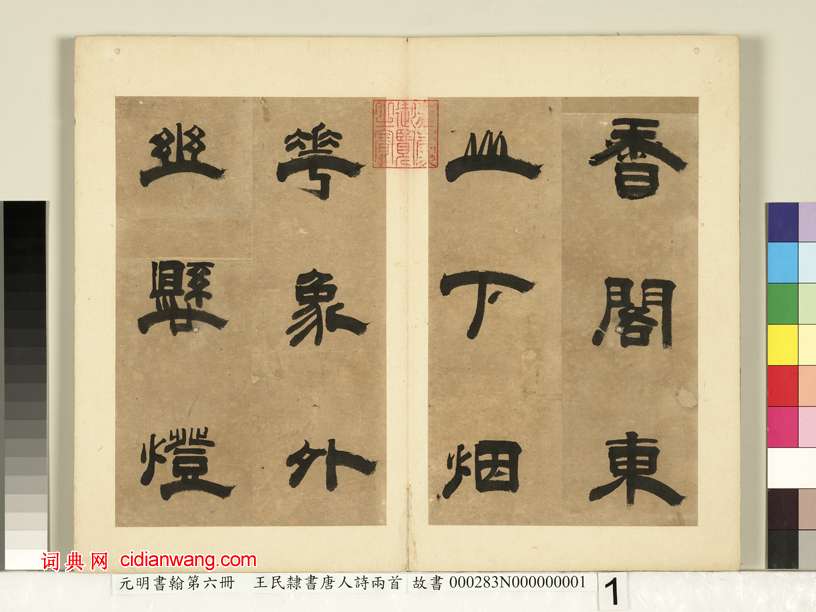 香閣東
山下烟
華象外
幽懸燈
词典网 cidianwang.com
元明書翰第六冊 王民隸書唐人詩兩首 故書 000283N000000001
1